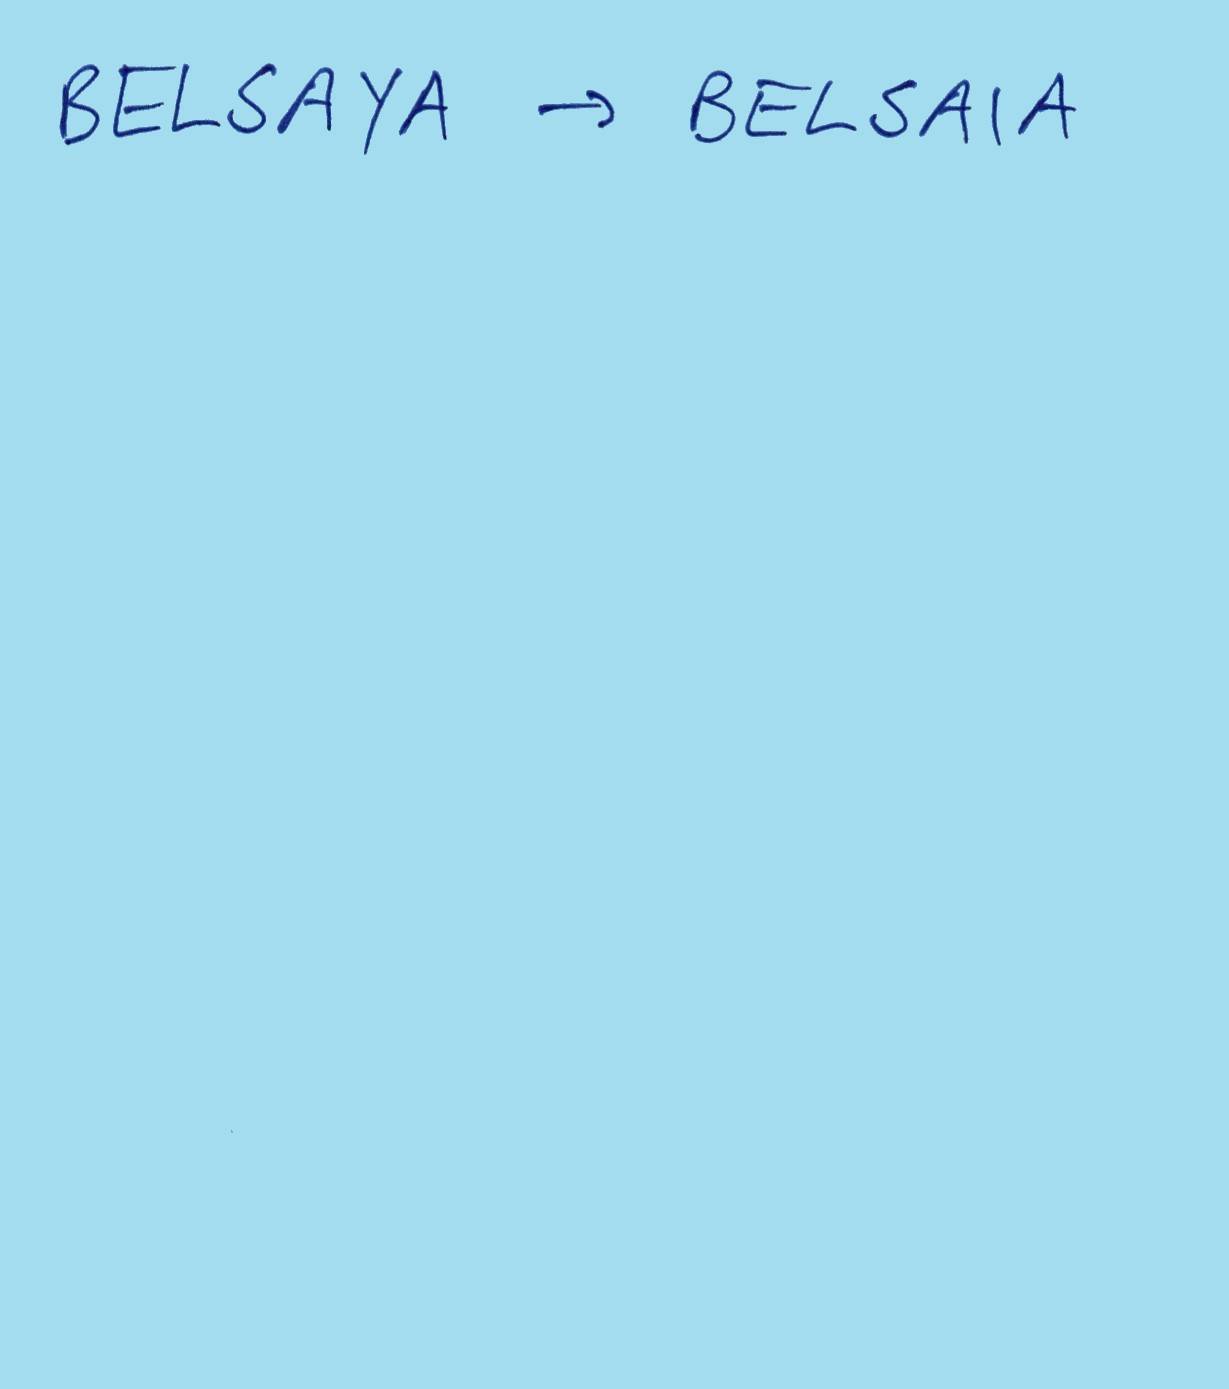 BELSAYA → BELSAIA